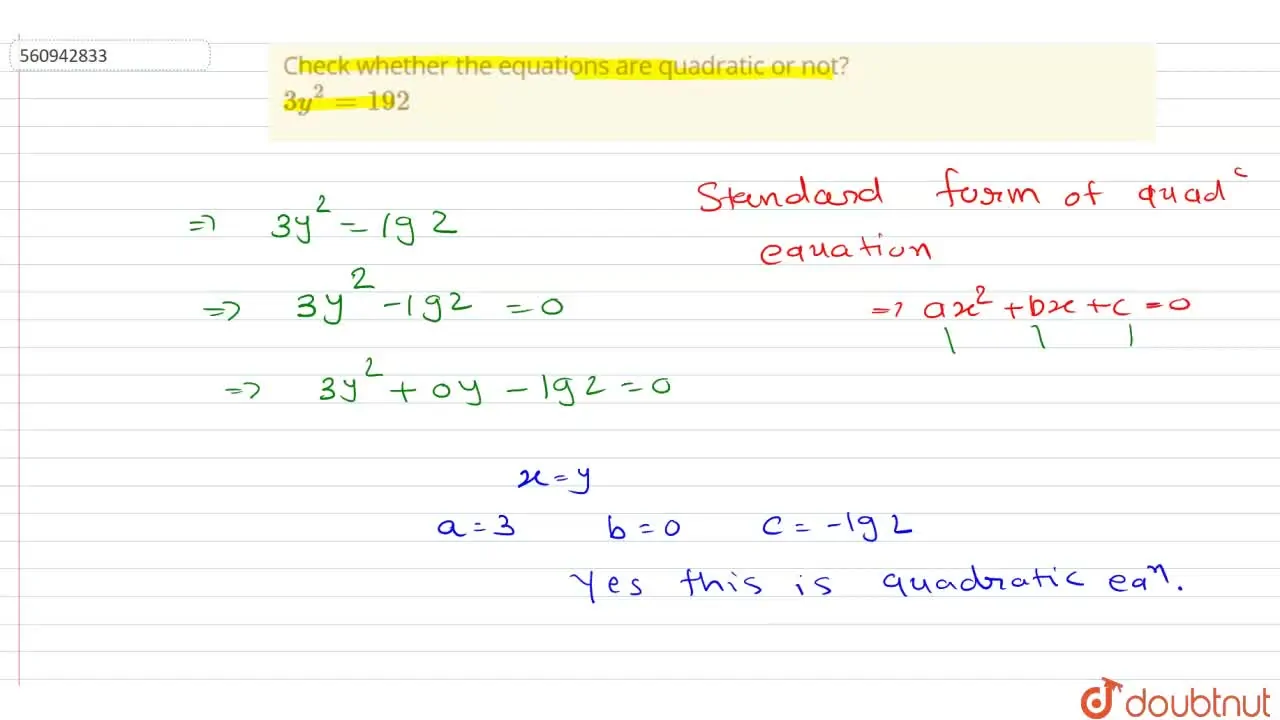 560942833
Check whether the equations are quadratic or not?
3y² = 192
⇒ 3y² = 192
⇒ 3y² - 192 = 0
⇒ 3y² + 0y - 192 = 0
Standard form of quadᶜ
equation
⇒ ax² + bx + c = 0
x = y
a = 3 b = 0 c = -192
Yes this is quadratic eqⁿ.
doubtnut